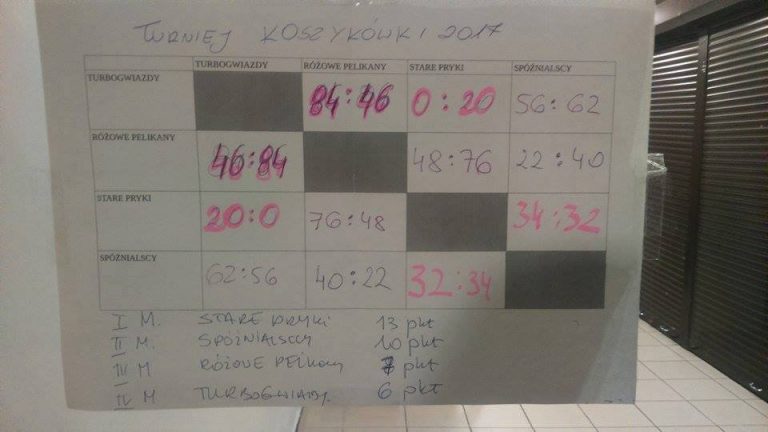 TURNIEJ KOSZYKÓWKI 2017
TURBOGWIAZDY RÓŻOWE PELIKANY STARE PRYKI SPÓŹNIALSCY
TURBOGWIAZDY 84:46 0:20 56:62
RÓŻOWE PELIKANY 46:84 48:76 22:40
STARE PRYKI 20:0 76:48 34:32
SPÓŹNIALSCY 62:56 40:22 32:34
I M. STARE PRYKI 13 pkt
II M. SPÓŹNIALSCY 10 pkt
III M RÓŻOWE PELIKANY 7 pkt
IV M TURBOGWIAZDY 6 pkt